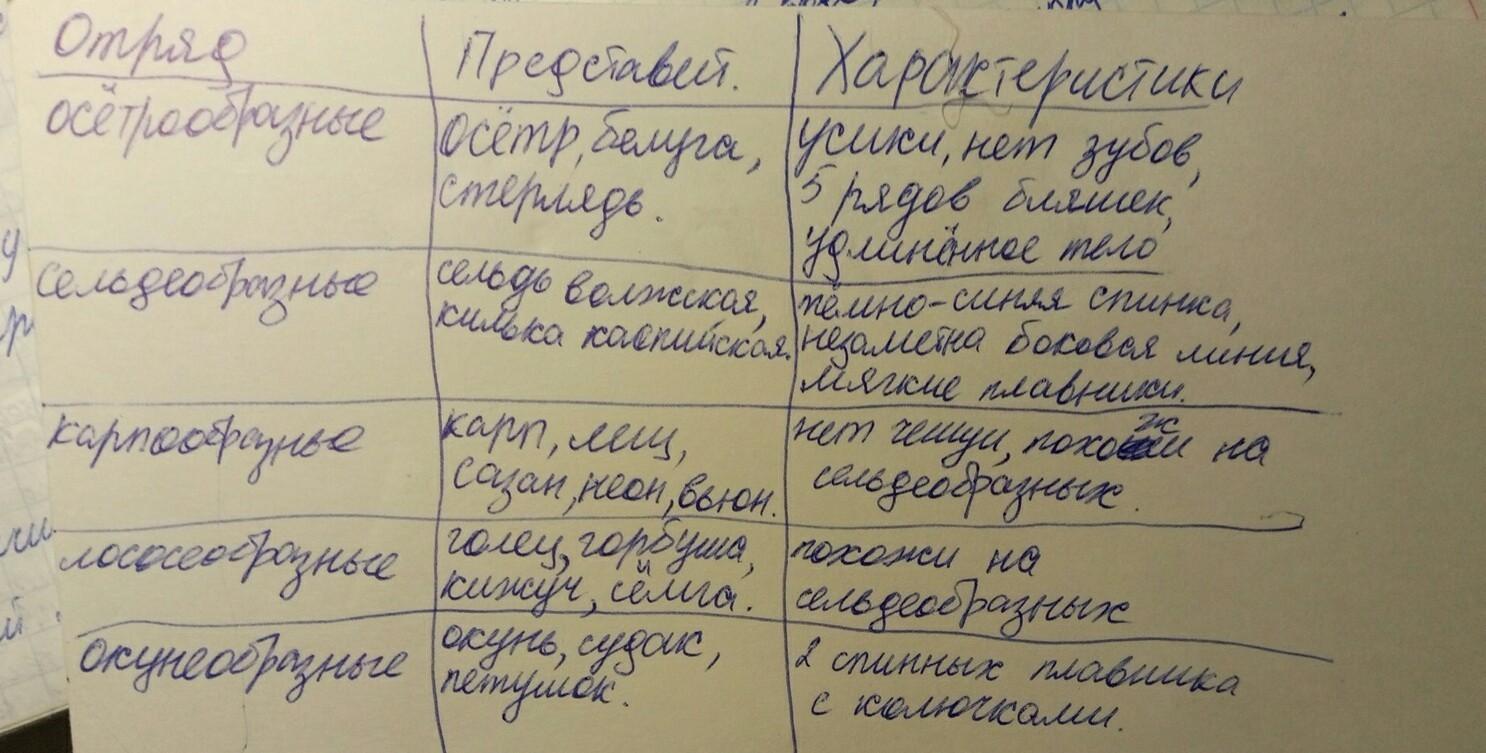 Отряд Представит. Характеристики
осётрообразные осётр, белуга, усики, нет зубов,
стерлядь. 5 рядов бляшек,
удлинённое тело
сельдеобразные сельдь волжская, тёмно-синяя спинка,
килька каспийская. незаметна боковая линия,
мягкие плавники.
карпообразные карп, лещ, нет чешуи, похожи на
сазан, неон, вьюн. сельдеобразных.
лососеобразные голец, горбуша, похожи на
кижуч, сёмга. сельдеобразных
окунеобразные окунь, судак, 2 спинных плавника
петушок. с колючками.